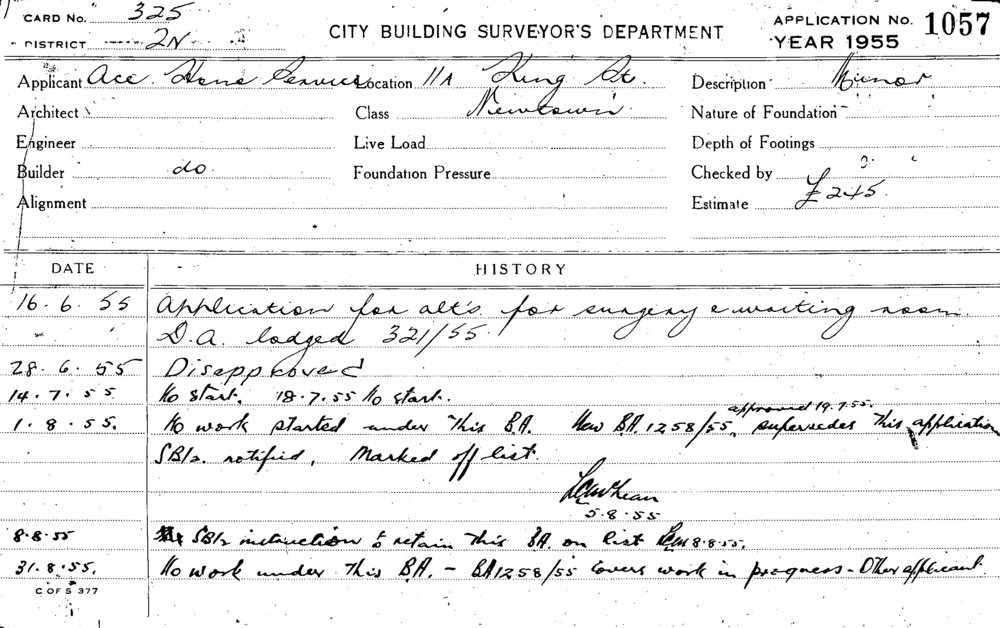 CARD No. 325
DISTRICT 2N
CITY BUILDING SURVEYOR'S DEPARTMENT
APPLICATION No. 1057
YEAR 1955
Applicant Ace Home Service Location 11A King St. Description Minor
Architect Class Newtown Nature of Foundation
Engineer Live Load Depth of Footings
Builder do. Foundation Pressure Checked by
Alignment Estimate £245
DATE HISTORY
16.6.55 Application for alt's for surgery & waiting room.
D.A. lodged 321/55
28.6.55 Disapproved
14.7.55 No start. 18.7.55 No start.
approved 19.7.55.
1.8.55. No work started under this B.A. New B.A. 1258/55, supersedes this application
SB/2. notified, Marked off list.
5.8.55
8.8.55 SB/2 instruction to retain this BA. on list 8.8.55.
31.8.55. No work under this B.A. - BA1258/55 covers work in progress - Other applicant.
C OF S 377